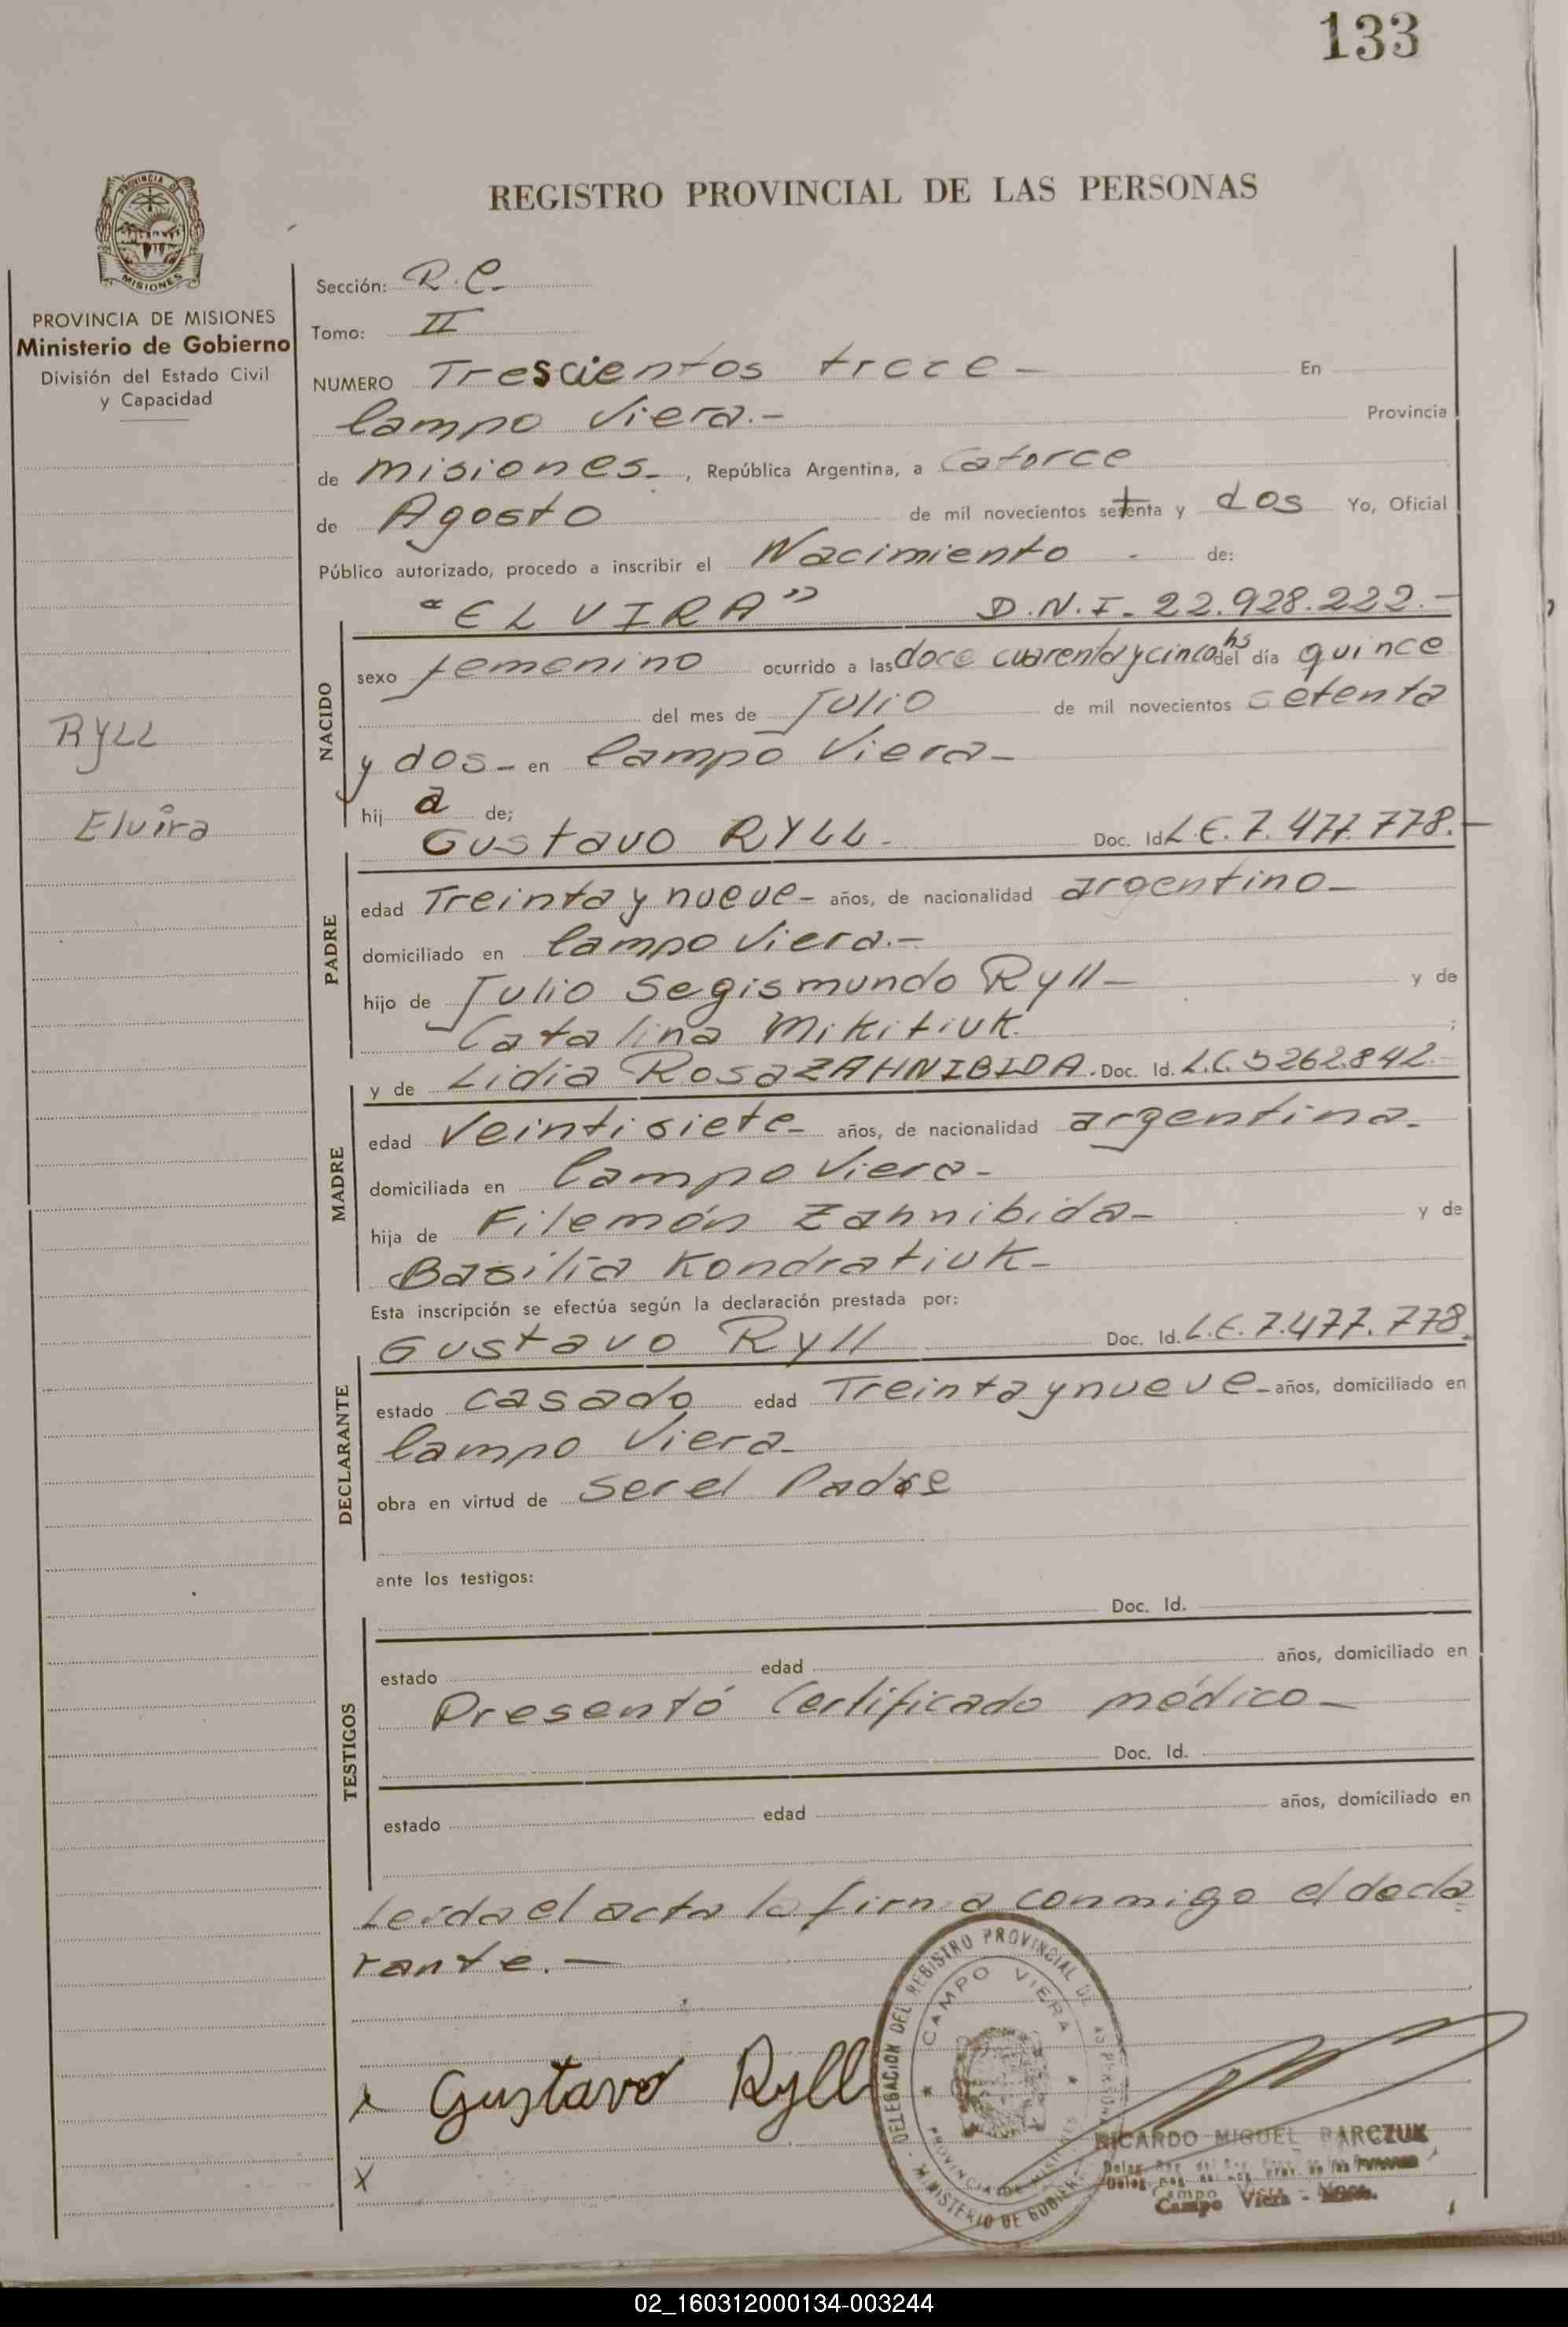 133
REGISTRO PROVINCIAL DE LAS PERSONAS
PROVINCIA DE
MISIONES
PROVINCIA DE MISIONES
Ministerio de Gobierno
División del Estado Civil
y Capacidad
RYLL
Elvira
Sección: R.C.
Tomo: II
NUMERO Trescientos trece - En
Campo Viera.- Provincia
de misiones-, República Argentina, a Catorce
de Agosto de mil novecientos setenta y dos Yo, Oficial
Público autorizado, procedo a inscribir el Nacimiento - de:
"ELVIRA" D.N.I. 22.928.222.-
NACIDO
sexo femenino ocurrido a las doce cuarenta y cinco hs del día quince
del mes de Julio de mil novecientos setenta
y dos - en Campo Viera-
hij a de;
Gustavo RYLL. Doc. Id. L.E. 7.477.778.-
PADRE
edad Treinta y nueve- años, de nacionalidad argentino-
domiciliado en Campo Viera.-
hijo de Julio Segismundo Ryll- y de
Catalina Mikitiuk. ;
y de Lidia Rosa ZAHNIBIDA. Doc. Id. L.C. 5262.842.-
MADRE
edad Veintisiete- años, de nacionalidad argentina.
domiciliada en Campo Viera-
hija de Filemón Zahnibida- y de
Basilia Kondratiuk-
Esta inscripción se efectúa según la declaración prestada por:
Gustavo Ryll Doc. Id. L.E. 7.477.778.
DECLARANTE
estado casado edad Treinta y nueve- años, domiciliado en
Campo Viera-
obra en virtud de ser el Padre
ante los testigos:
Doc. Id.
TESTIGOS
estado edad años, domiciliado en
Presentó Certificado médico-
Doc. Id.
estado edad años, domiciliado en
Leida el acta la firma conmigo el decla
rante.-
x Gustavo Ryll
X
DELEGACION DEL REGISTRO PROVINCIAL DE
CAMPO VIERA
PROVINCIA DE MISIONES
MINISTERIO DE GOBIERNO
RICARDO MIGUEL PARCZUK
Campo Viera - Mnes.
02_160312000134-003244